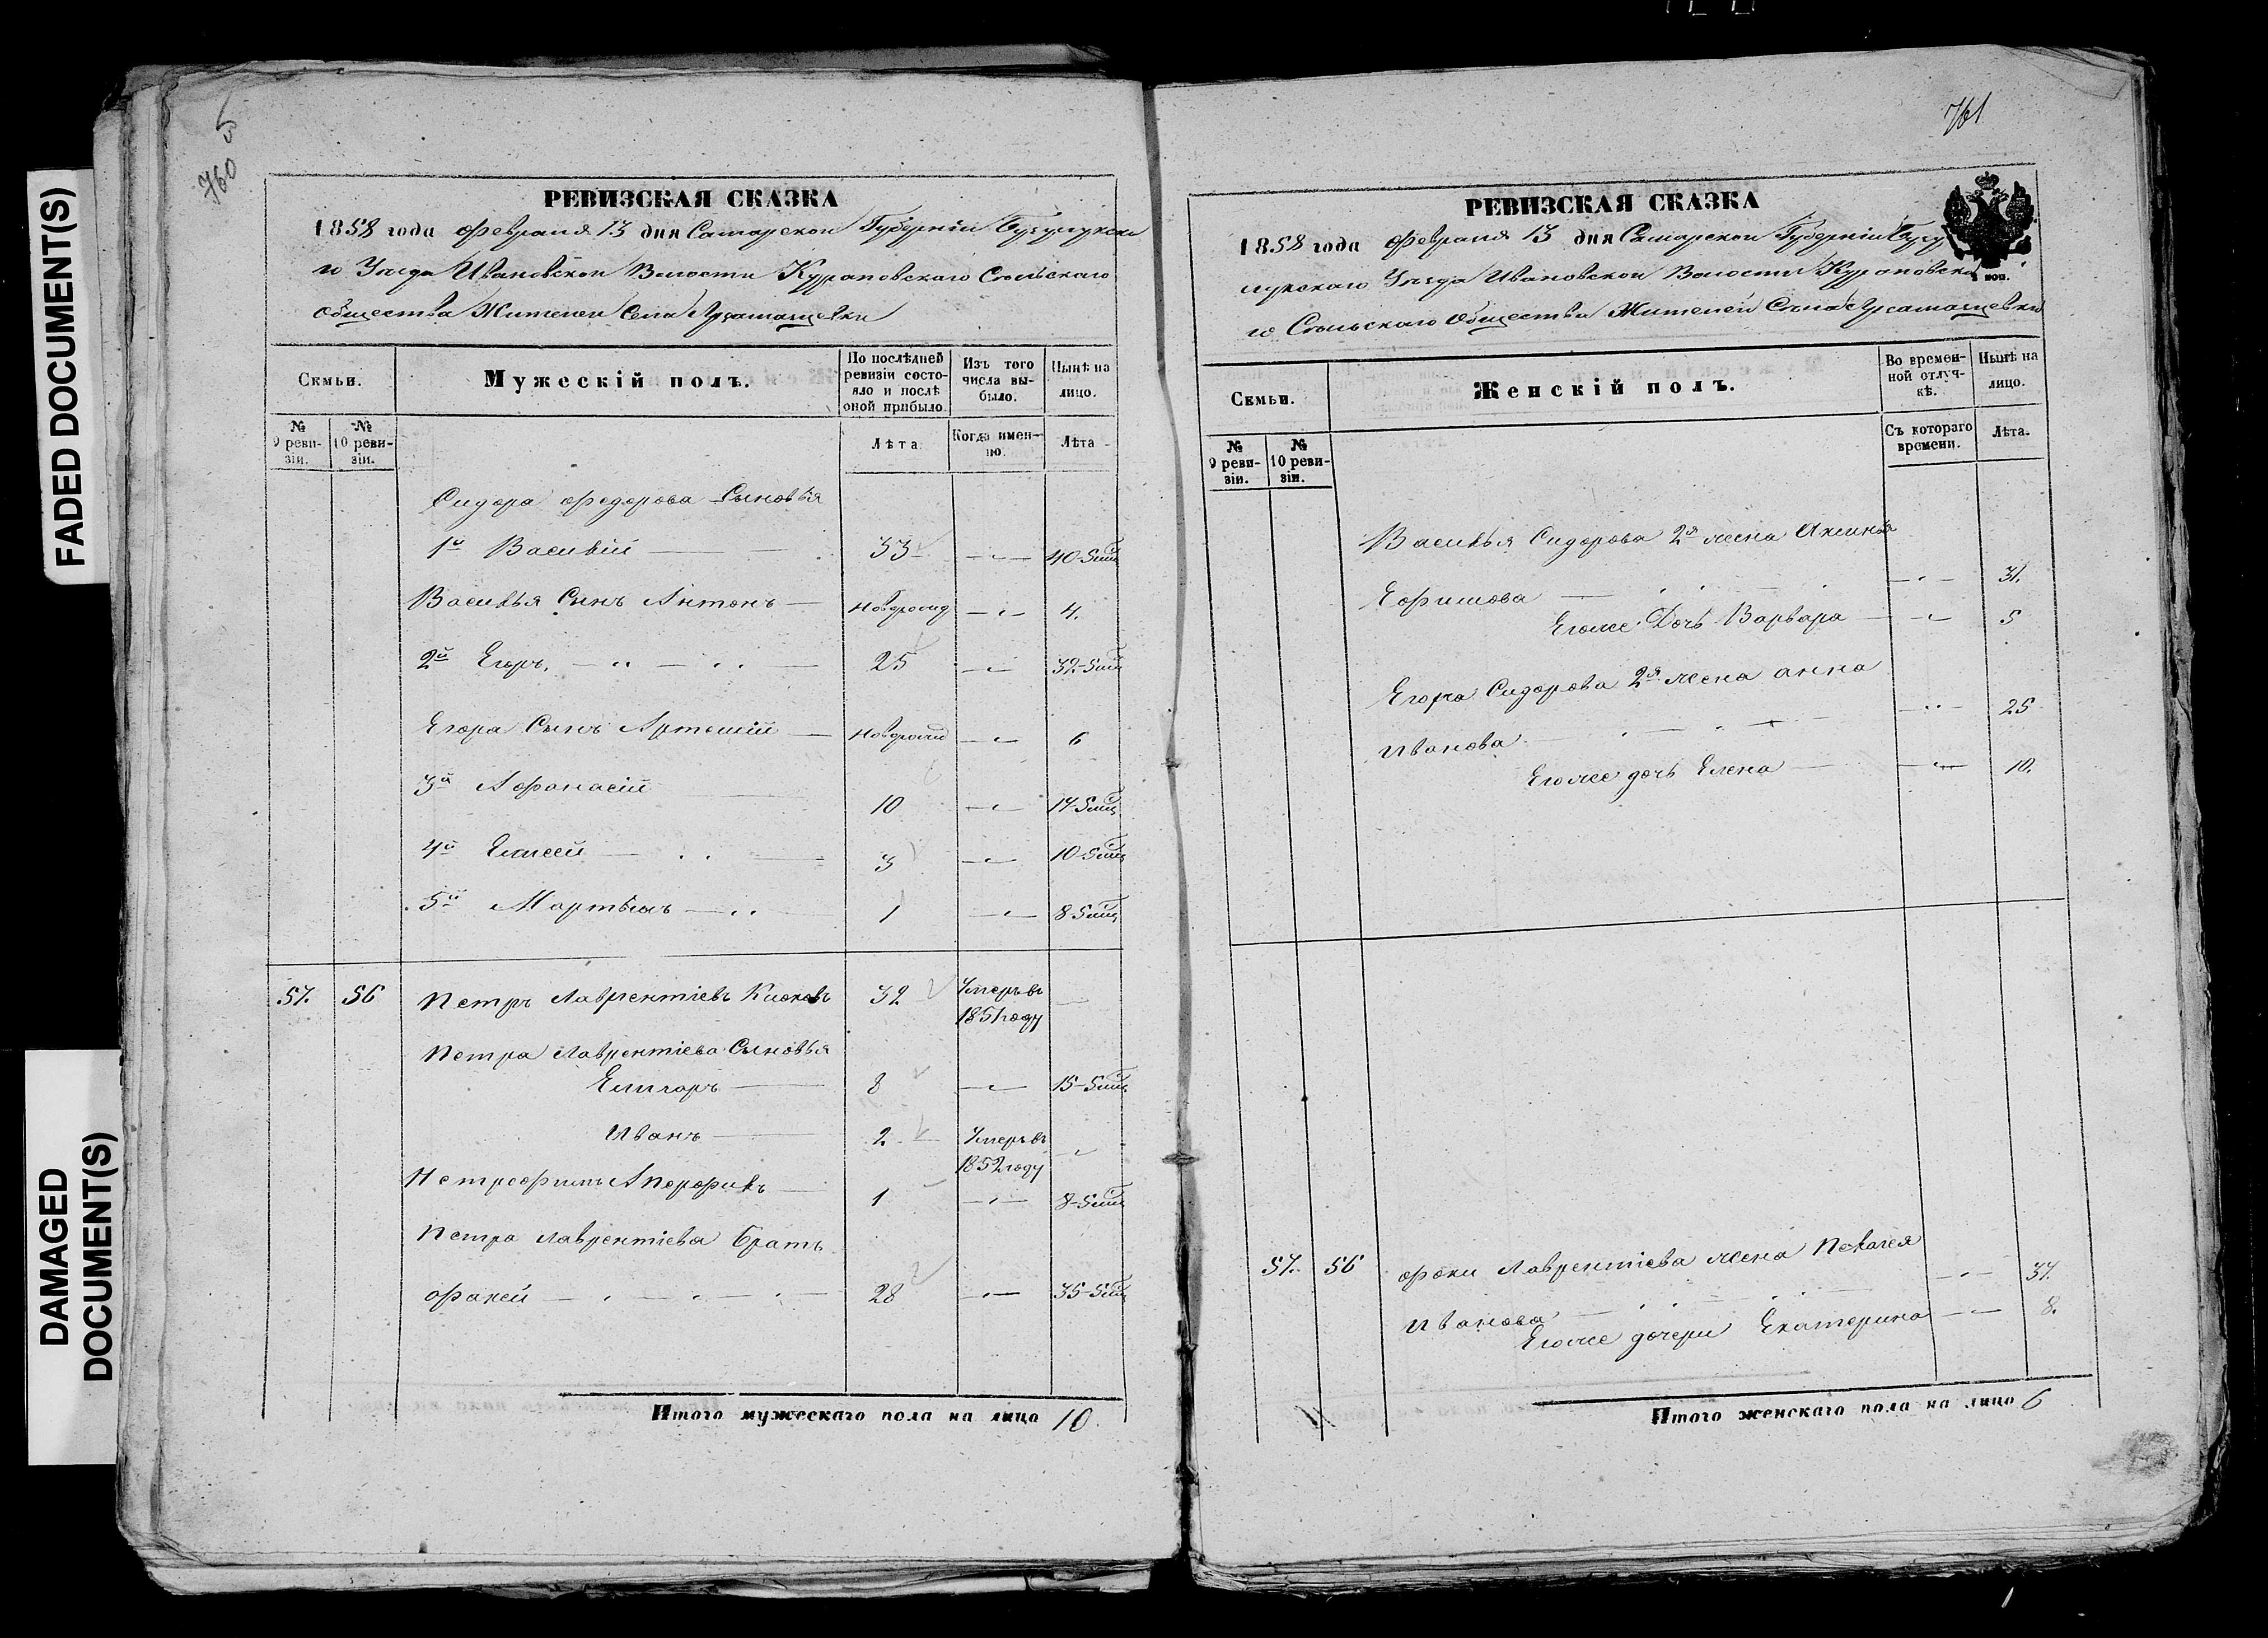 FADED DOCUMENT(S)
DAMAGED
DOCUMENT(S)
5
760
РЕВИЗСКАЯ СКАЗКА
1858 года февраля 13 дня Самарской Губерніи Бугурускла
го Уезда Ивановской Волости Курановскаго Сельскаго
общества Жителей Села
Семьи.
Мужескій полъ.
По послѣдней ревизіи состояло и послѣ оной прибыло.
Изъ того числа выбыло.
Нынѣ на лицо.
№ 9 ревизіи.
№ 10 ревизіи.
Лѣта
Когда именно.
Лѣта
Сидора федорова Сыновья
1й Василій 33 40-5
Василья Сынъ Антонъ новорожд 4.
2й Егоръ, 25 32-5
Егора Сынъ Артемій новорожд 6
3й Афонасій 10 17-5
4й Елисей 3 10-5
5й Мартынъ 1 8-5
57. 56 Петръ Лаврентіевъ 32 Умеръ въ
1851 году
Петра Лаврентіева Сыновья
8 15-5
Иванъ 2 Умеръ въ
1852 году
1 8-5
Петра Лаврентіева братъ
фокей 28 35-5
Итого мужескаго пола на лицо 10
761
РЕВИЗСКАЯ СКАЗКА
1858 года февраля 13 дня Самарской Губерніи Бугу
скаго Уезда Ивановской Волости Курановска
го Сельскаго Общества Жителей Села
1 коп.
Семьи.
Женскій полъ.
Во временной отлучкѣ.
Нынѣ на лицо.
№ 9 ревизіи.
№ 10 ревизіи.
Съ котораго времени.
Лѣта.
Василья Сидорова 2я жена Аксинья
Ефимова 31.
Егоже Дочь Варвара 5
Егора Сидорова 2я жена анна
Иванова 25
Егоже дочь Елена 10.
57. 56 фоки Лаврентіева жена Пелагея
Иванова 37.
Егоже дочери Екатерина 8.
Итого женскаго пола на лицо 6